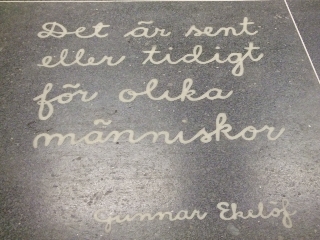 Det är sent
eller tidigt
för olika
människor
Gunnar Ekelöf